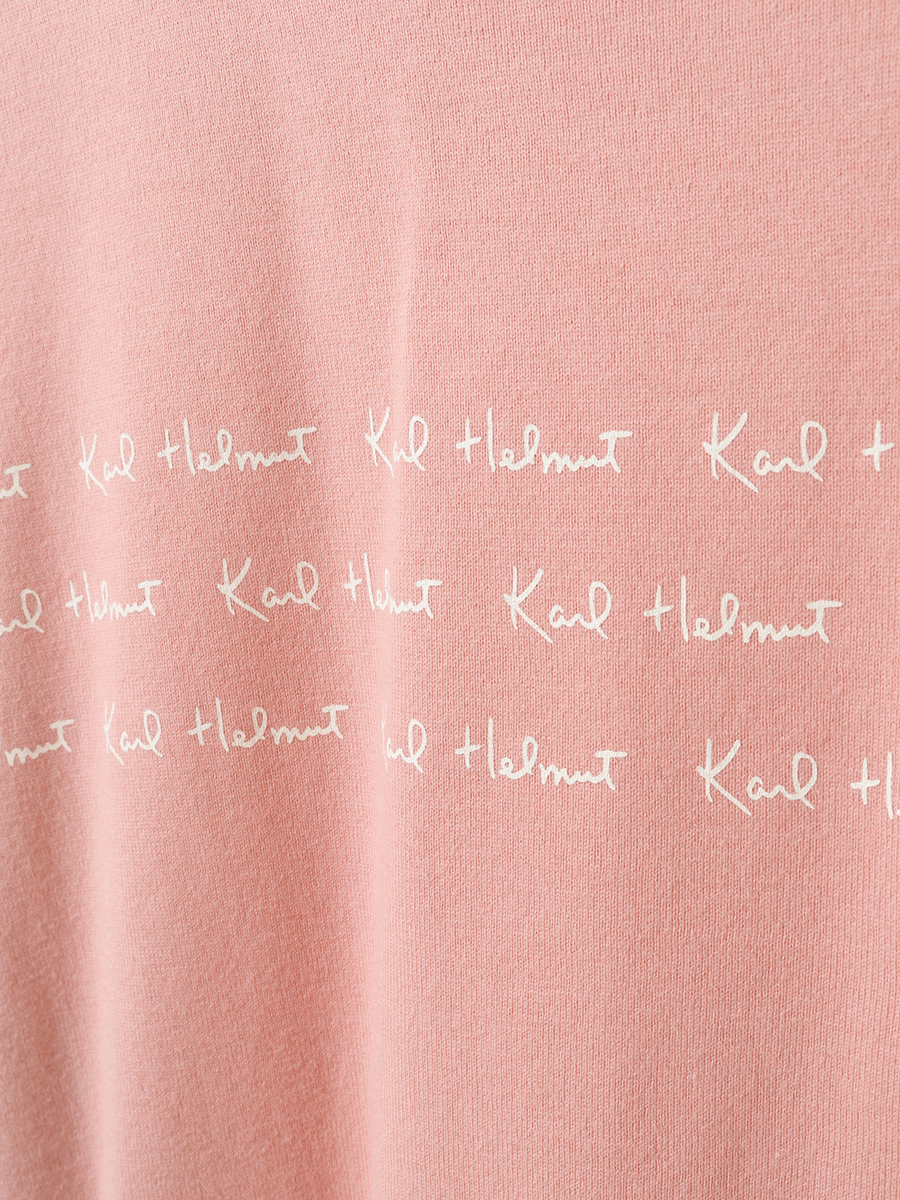 Karl Helmut Karl Helmut Karl
Helmut Karl Helmut Karl Helmut
Karl Helmut Karl Helmut Karl